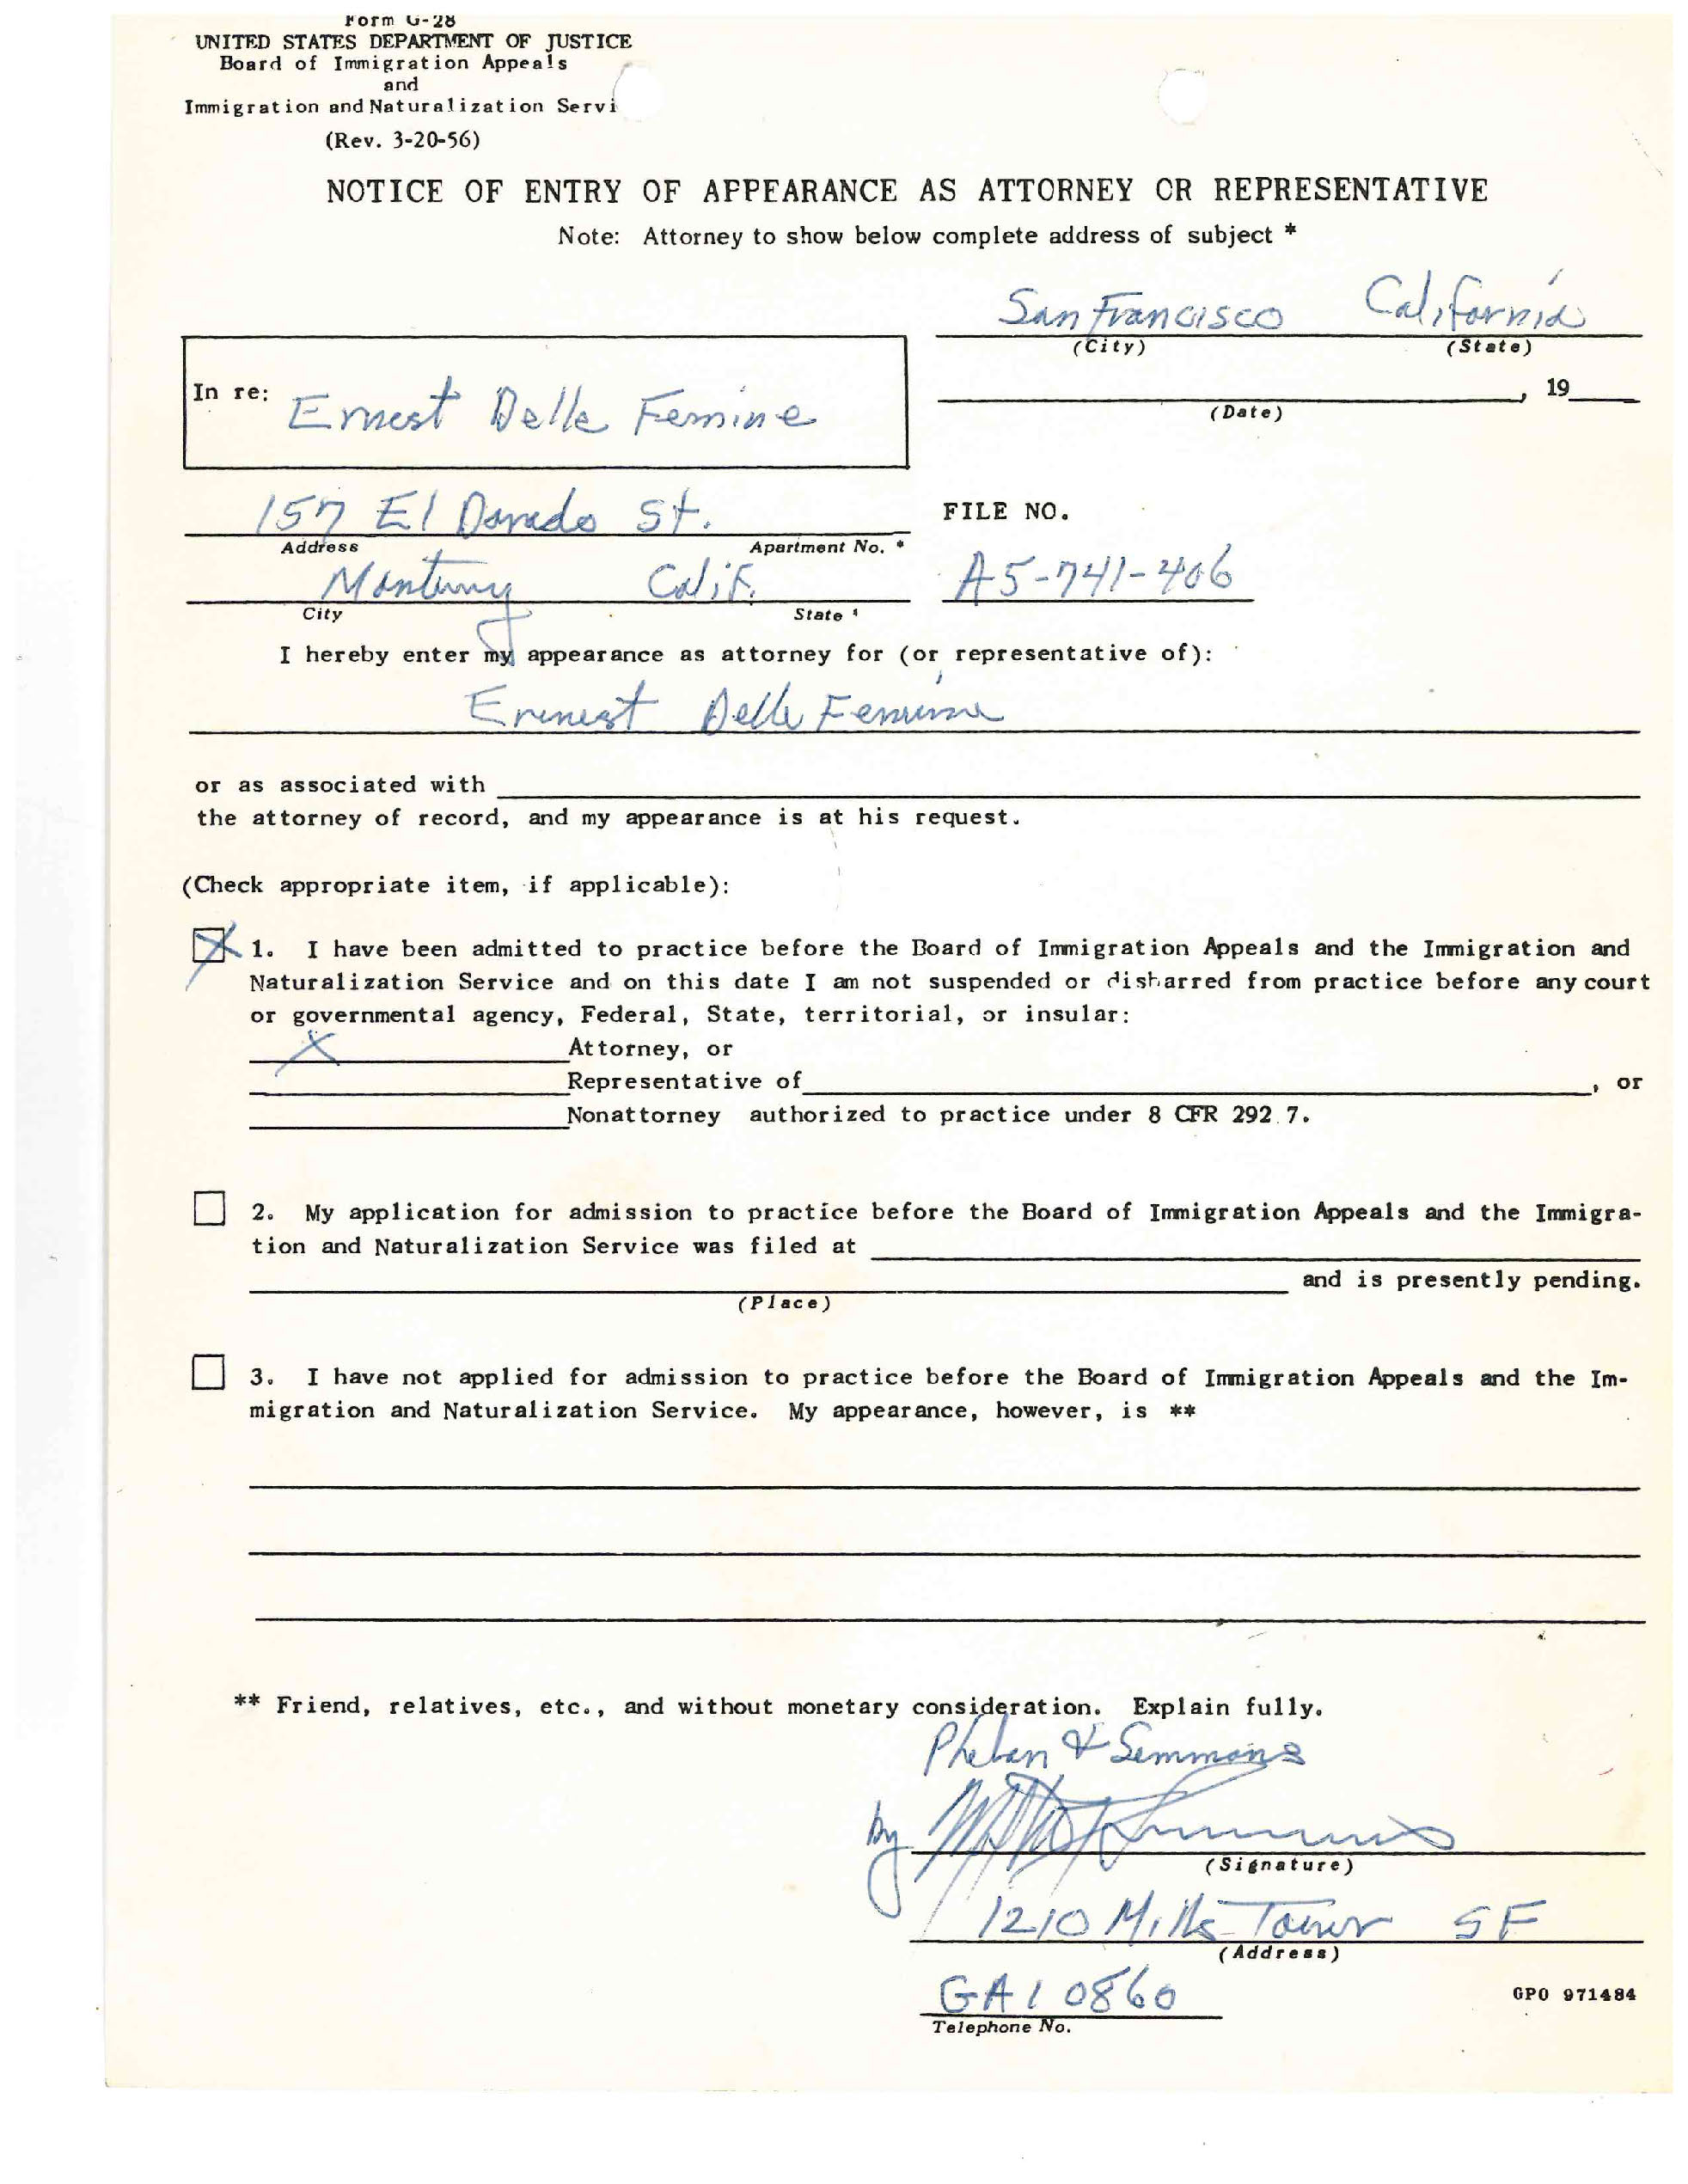 Form G-28
UNITED STATES DEPARTMENT OF JUSTICE
Board of Immigration Appeals
and
Immigration and Naturalization Servi
(Rev. 3-20-56)
NOTICE OF ENTRY OF APPEARANCE AS ATTORNEY OR REPRESENTATIVE
Note: Attorney to show below complete address of subject *
San Francisco California
(City) (State)
In re: Ernest Delle Femine
, 19
(Date)
157 El Dorado St.
Address Apartment No. *
FILE NO.
Monterey Calif.
City State *
A5-741-406
I hereby enter my appearance as attorney for (or representative of):
Ernest Delle Femine
or as associated with
the attorney of record, and my appearance is at his request.
(Check appropriate item, if applicable):
X 1. I have been admitted to practice before the Board of Immigration Appeals and the Immigration and
Naturalization Service and on this date I am not suspended or disbarred from practice before any court
or governmental agency, Federal, State, territorial, or insular:
X Attorney, or
Representative of , or
Nonattorney authorized to practice under 8 CFR 292.7.
2. My application for admission to practice before the Board of Immigration Appeals and the Immigra-
tion and Naturalization Service was filed at
and is presently pending.
(Place)
3. I have not applied for admission to practice before the Board of Immigration Appeals and the Im-
migration and Naturalization Service. My appearance, however, is **
** Friend, relatives, etc., and without monetary consideration. Explain fully.
Phelan & Simmons
by
(Signature)
1210 Mills Tower SF
(Address)
GA 1 0860
Telephone No.
GPO 971484